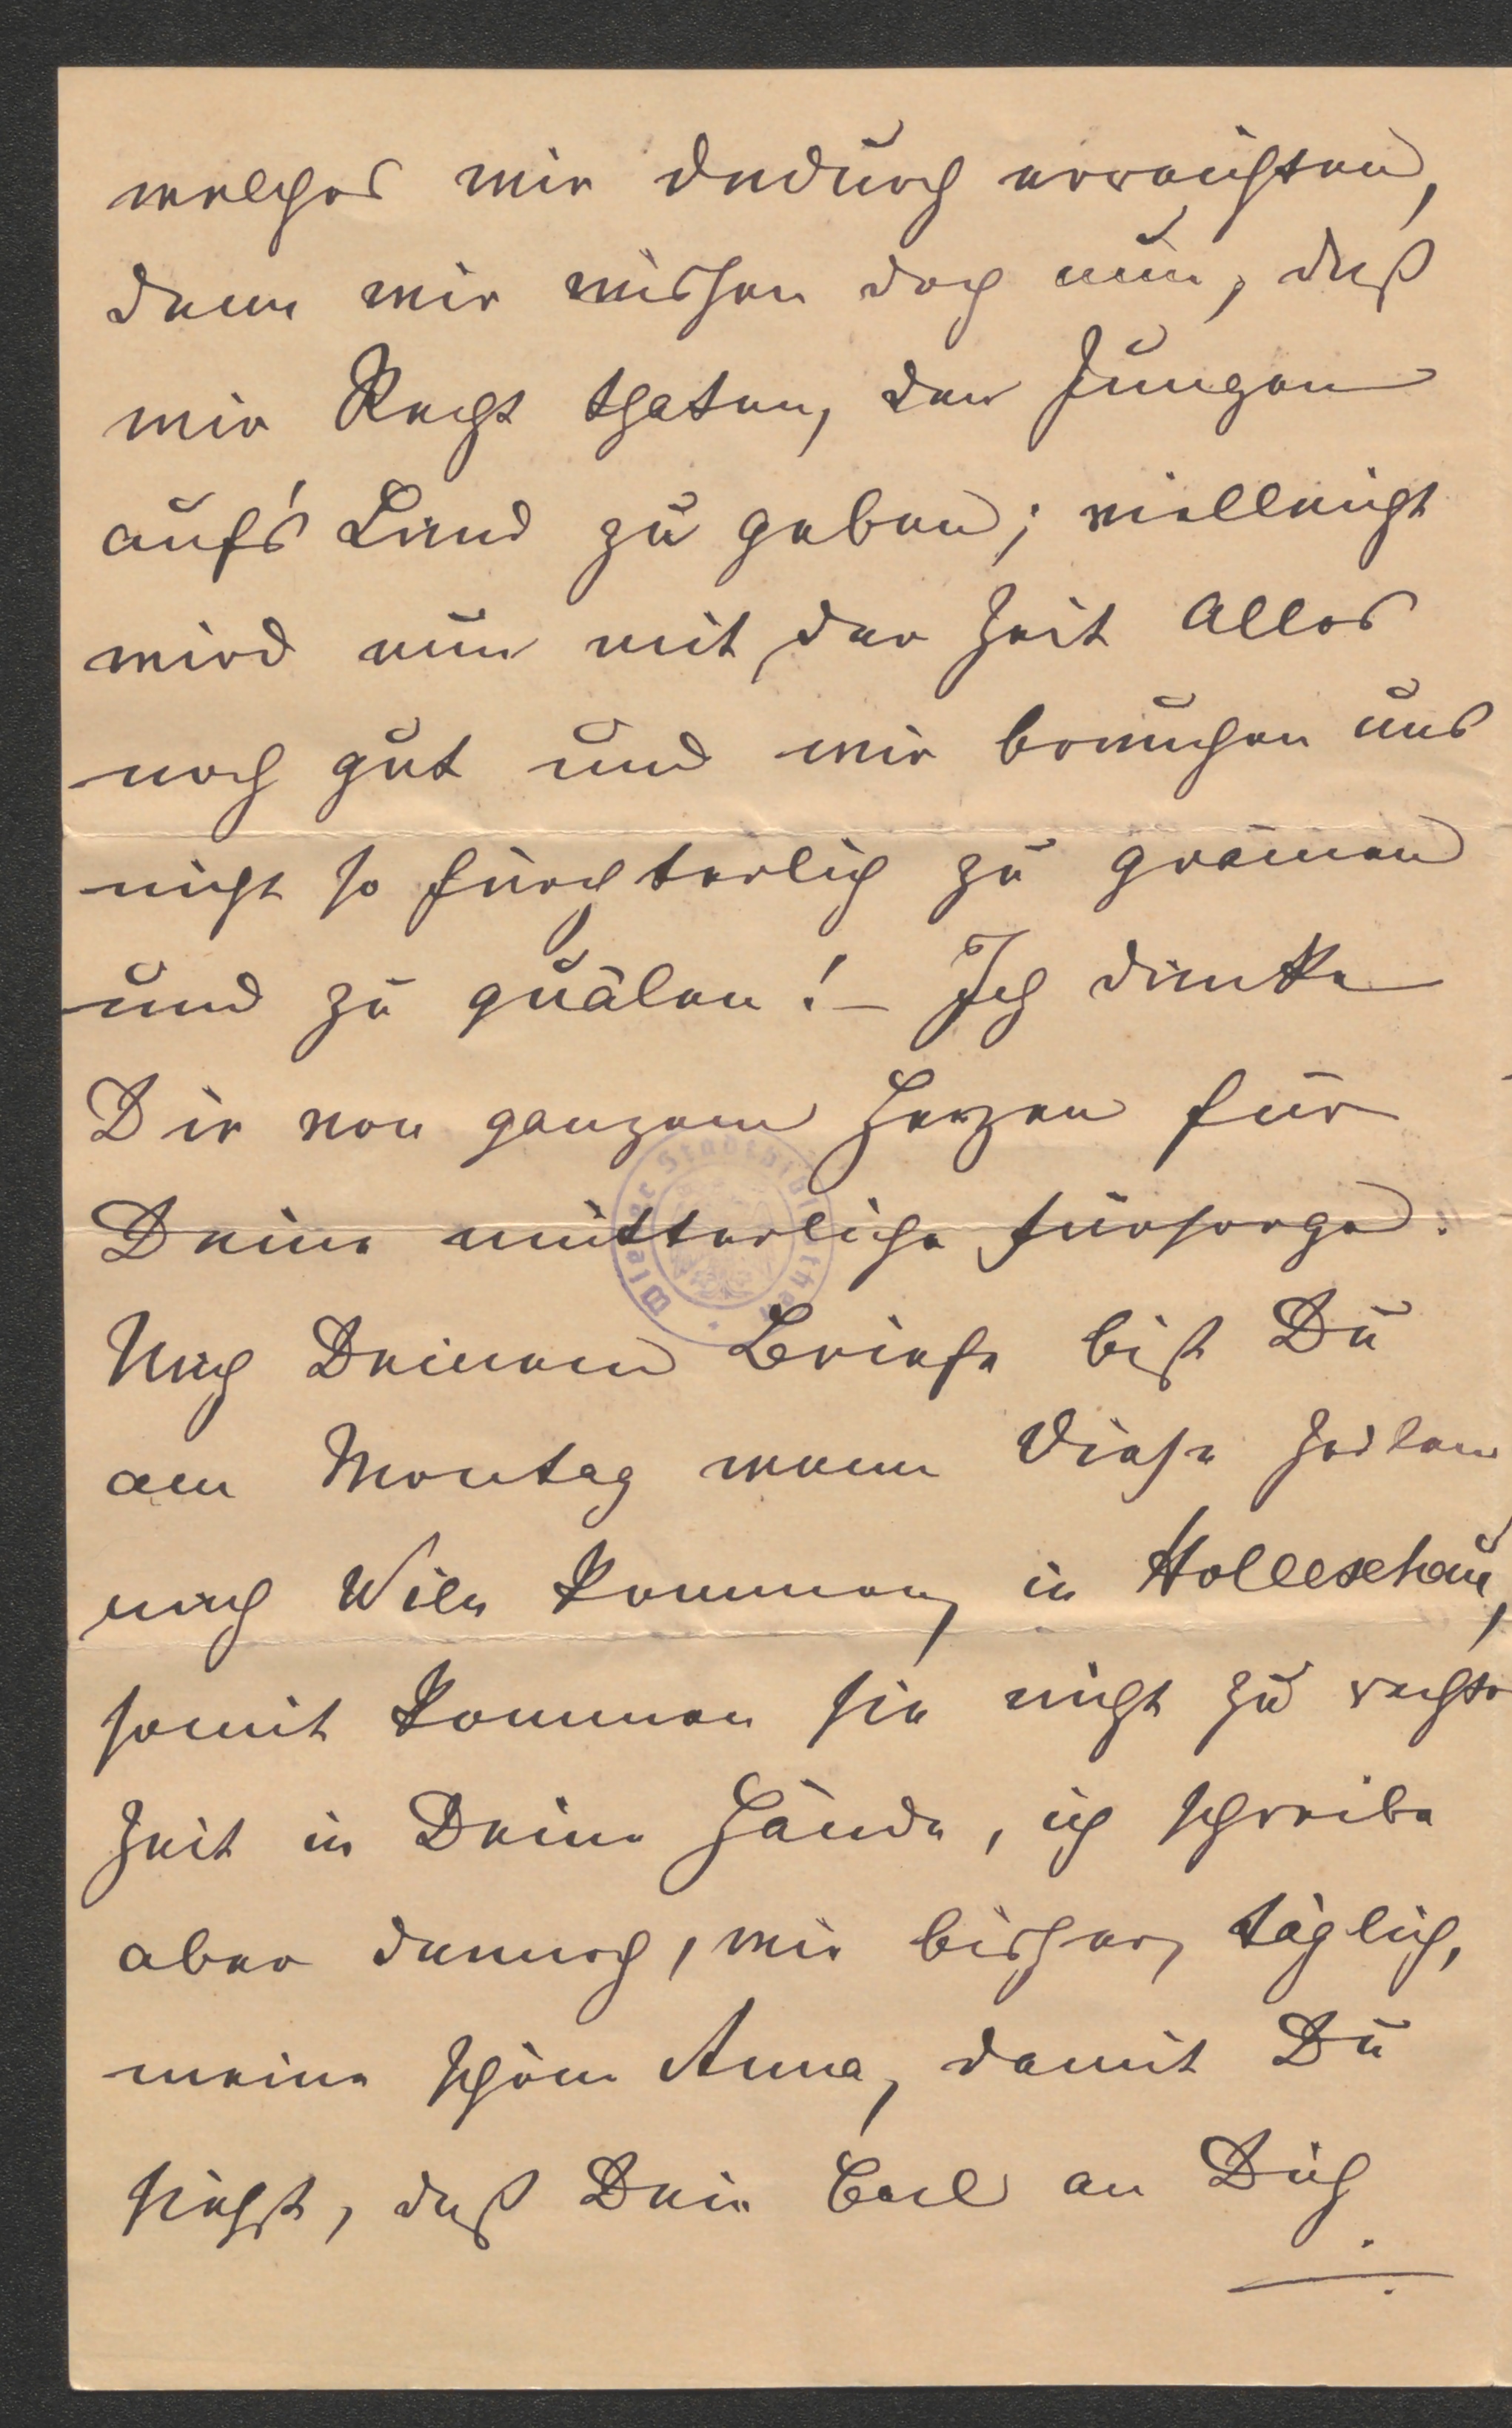 welches wir dadurch erreichten,
denn wir wissen doch nun, daß
wir Recht thaten, den Jungen
auf's Land zu geben; vielleicht
wird nun mit der Zeit Alles
noch gut und wir brauchen uns
nicht so fürchterlich zu grämen
und zu quälen! – Ich danke
Dir von ganzem Herzen für
Deine mütterliche Fürsorge.
Nach Deinem Briefe bist Du
am Montag wenn diese Zeilen
nach Wien kommen, in Holleschau,
somit kommen sie nicht zu rechter
Zeit in Deine Hände, ich schreibe
aber dennoch, wie bisher, täglich,
meine schöne Anna, damit Du
siehst, daß Dein Carl an Dich
Wiener Stadtbibliothek